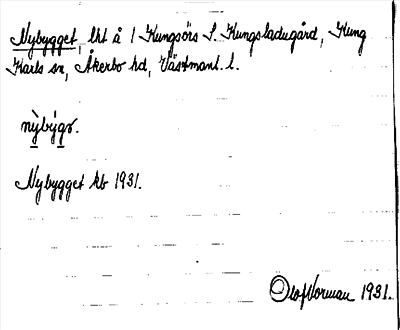 Nybygget, lht å 1 Kungsörs S. Kungsladugård, Kung
Karls sn, Åkerbo hd, Västmanl. l.
nỳbýgg.
Nybygget kb 1931.
Olof Norman 1931.